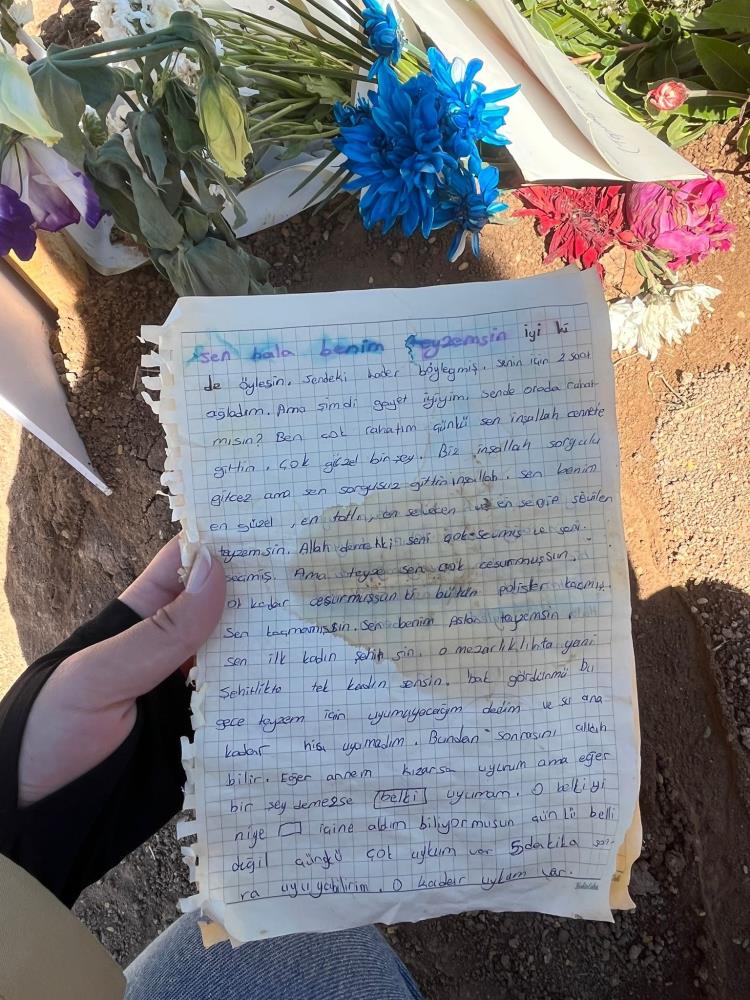 sen hala benim teyzemsin iyi ki
de öylesin. sendeki kader böyleymiş. senin için 2 saat
ağladım. Ama şimdi gayet iyiyim. sende orada rahat-
mısın? Ben çok rahatım çünkü sen inşallah cennete
gittin. çok güzel birşey. Biz inşallah sorgulu
gitcez ama sen sorgusuz gittin inşallah. sen benim
en güzel, en tatlı, en en sevip sevilen
teyzemsin. Allah demekki seni çok sevmiş ve seni
seçmiş. Ama teyze sen çok cesurmuşsun.
O kadar cesurmuşsun ki bütün polisler kaçmış.
Sen kaçmamışsın. Sen benim Aslan teyzemsin.
sen ilk kadın şehitsin. o mezarlıklıhta yeni
Şehitlikte tek kadın sensin. bak gördünmü bu
gece teyzem için uyumuyacağım dedim ve şu ana
kadar hiç uyumadım. Bundan sonrasını allah
bilir. Eğer annem kızarsa uyurum ama eğer
bir şey demezse belki uyumam. O belkiyi
niye içine aldım biliyormusun çünkü belli
değil çünkü çok uykum var 5 dakika son-
ra uyuyabilirim. O kadar uykum var.